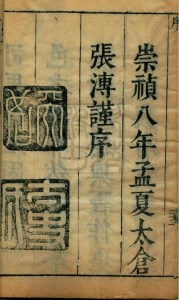 崇禎八年孟夏太倉
張溥謹序